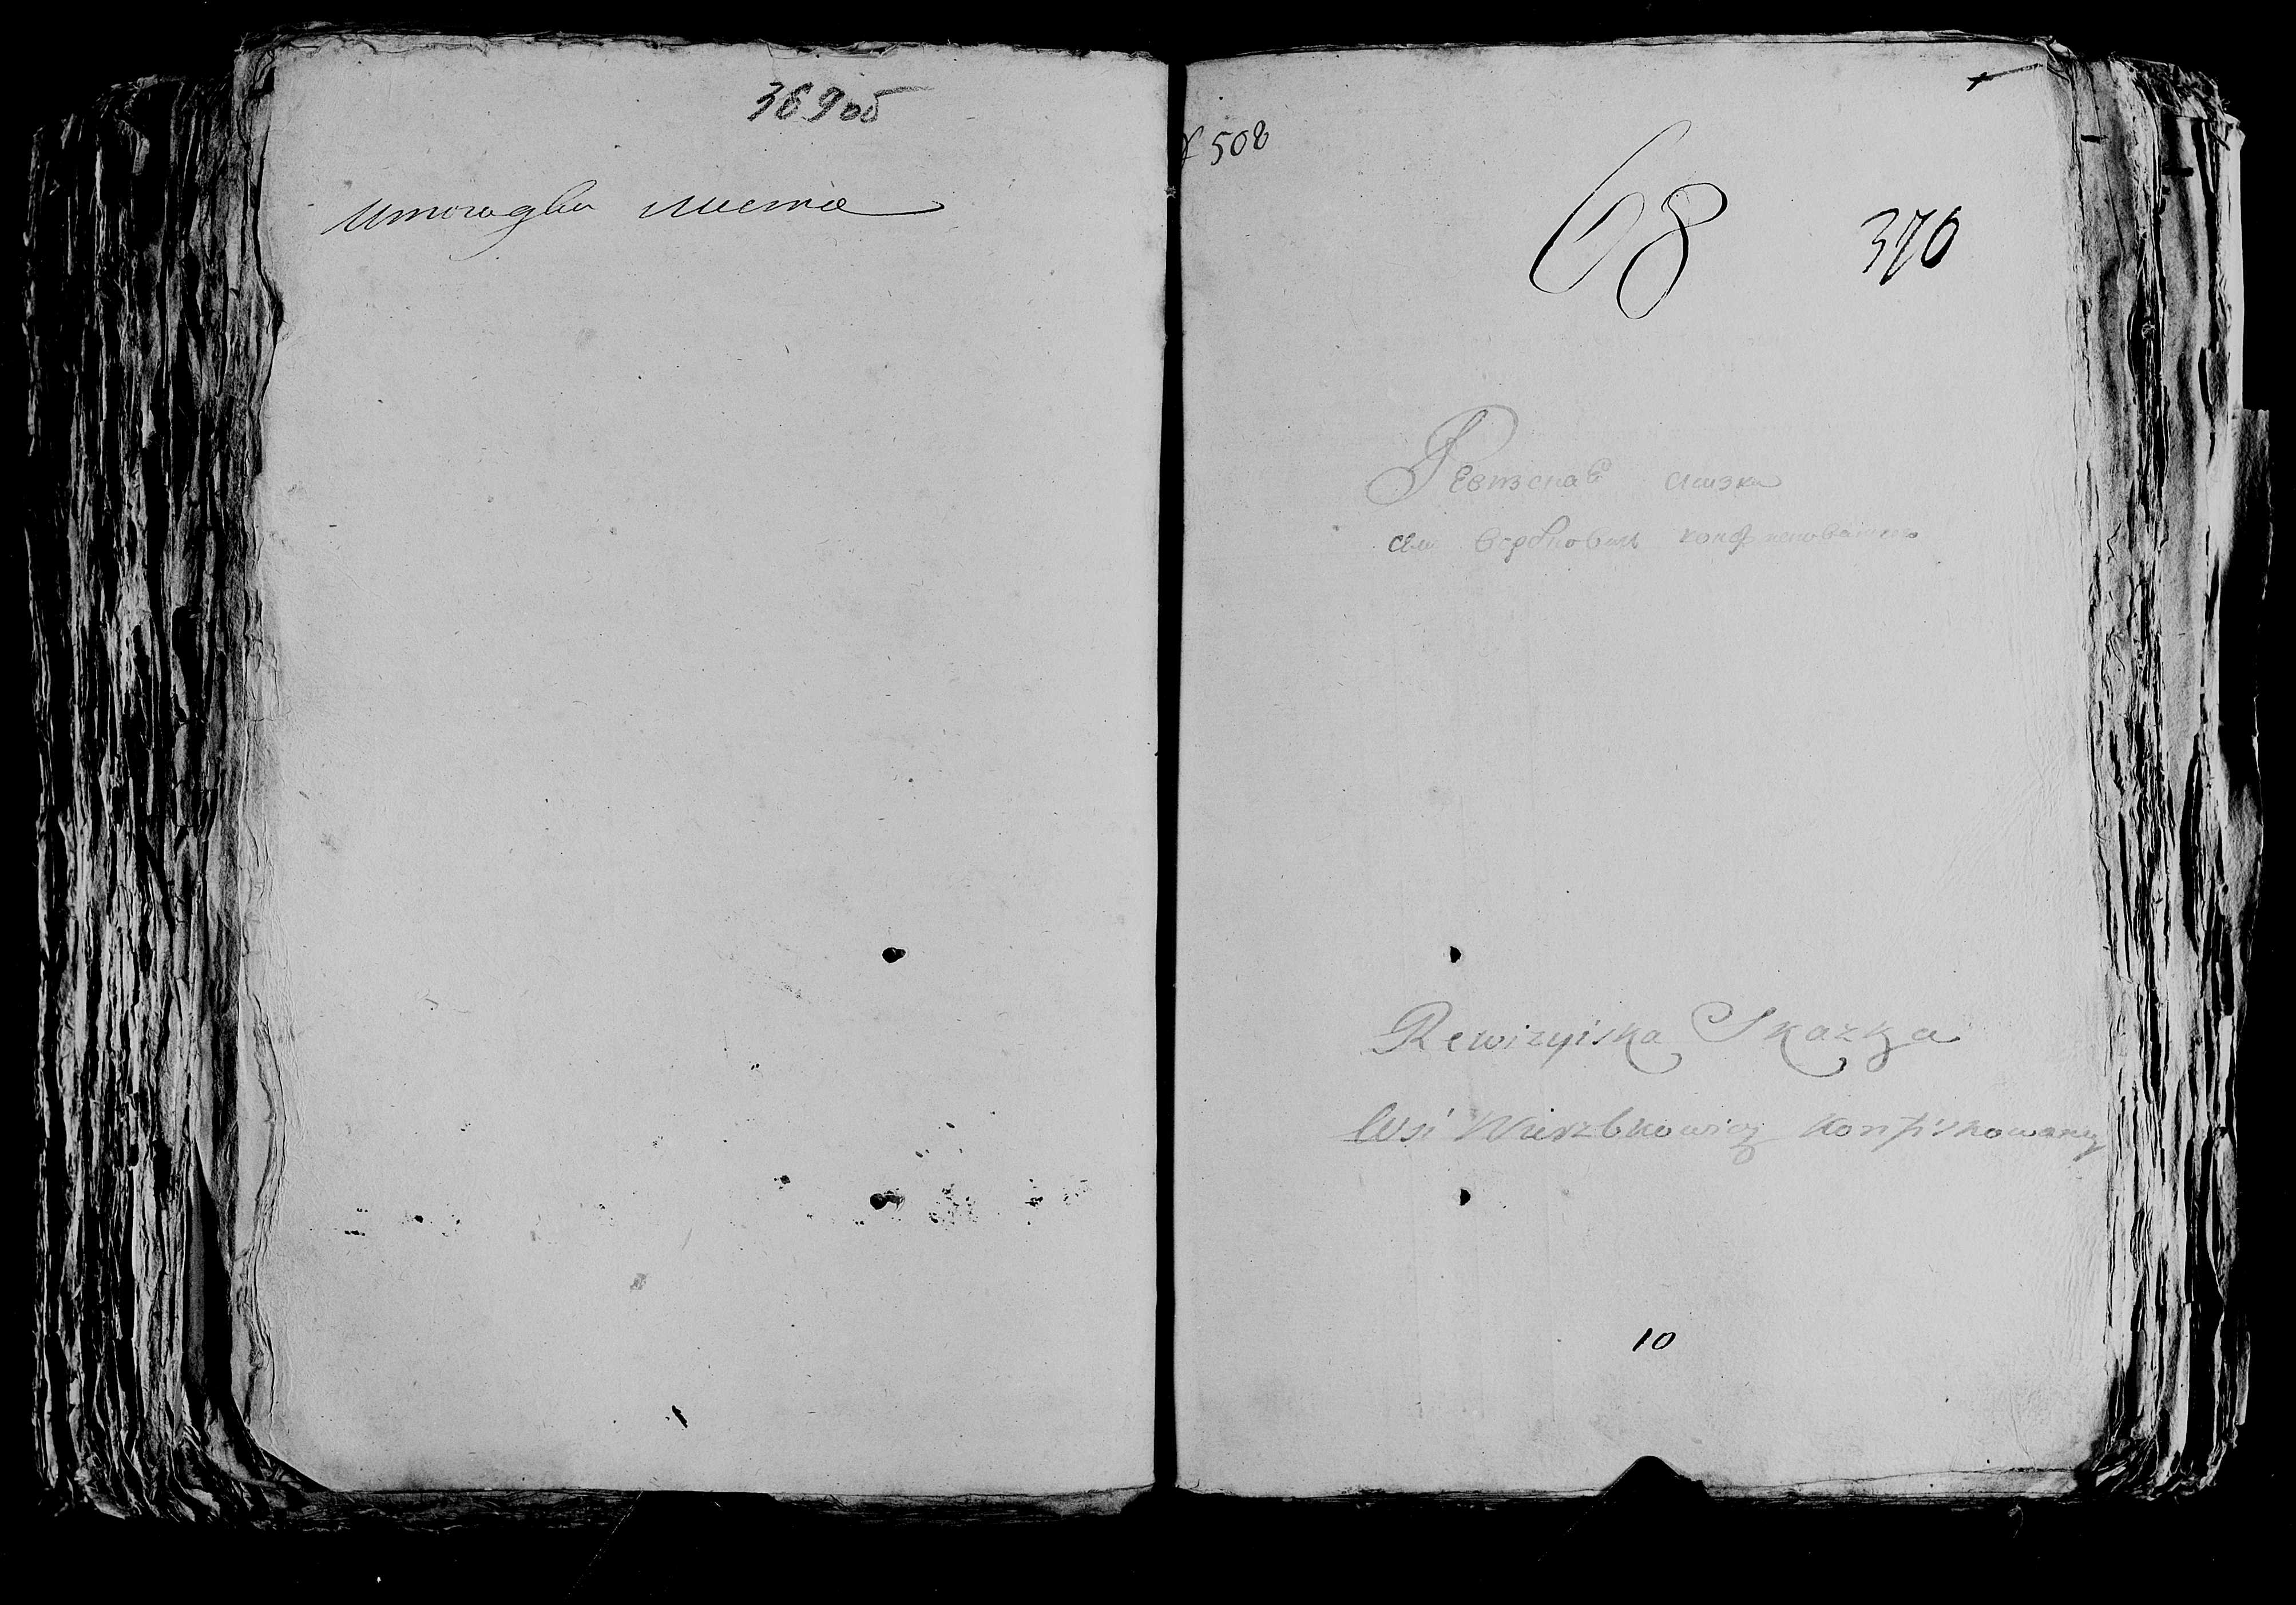 369об
Итого два листа
508
68
370
Ревизская сказка
села Вербковиц конфискованного
Rewizyiska Skazka
Wsi Wierzbkowicz Konfiskowaney
10